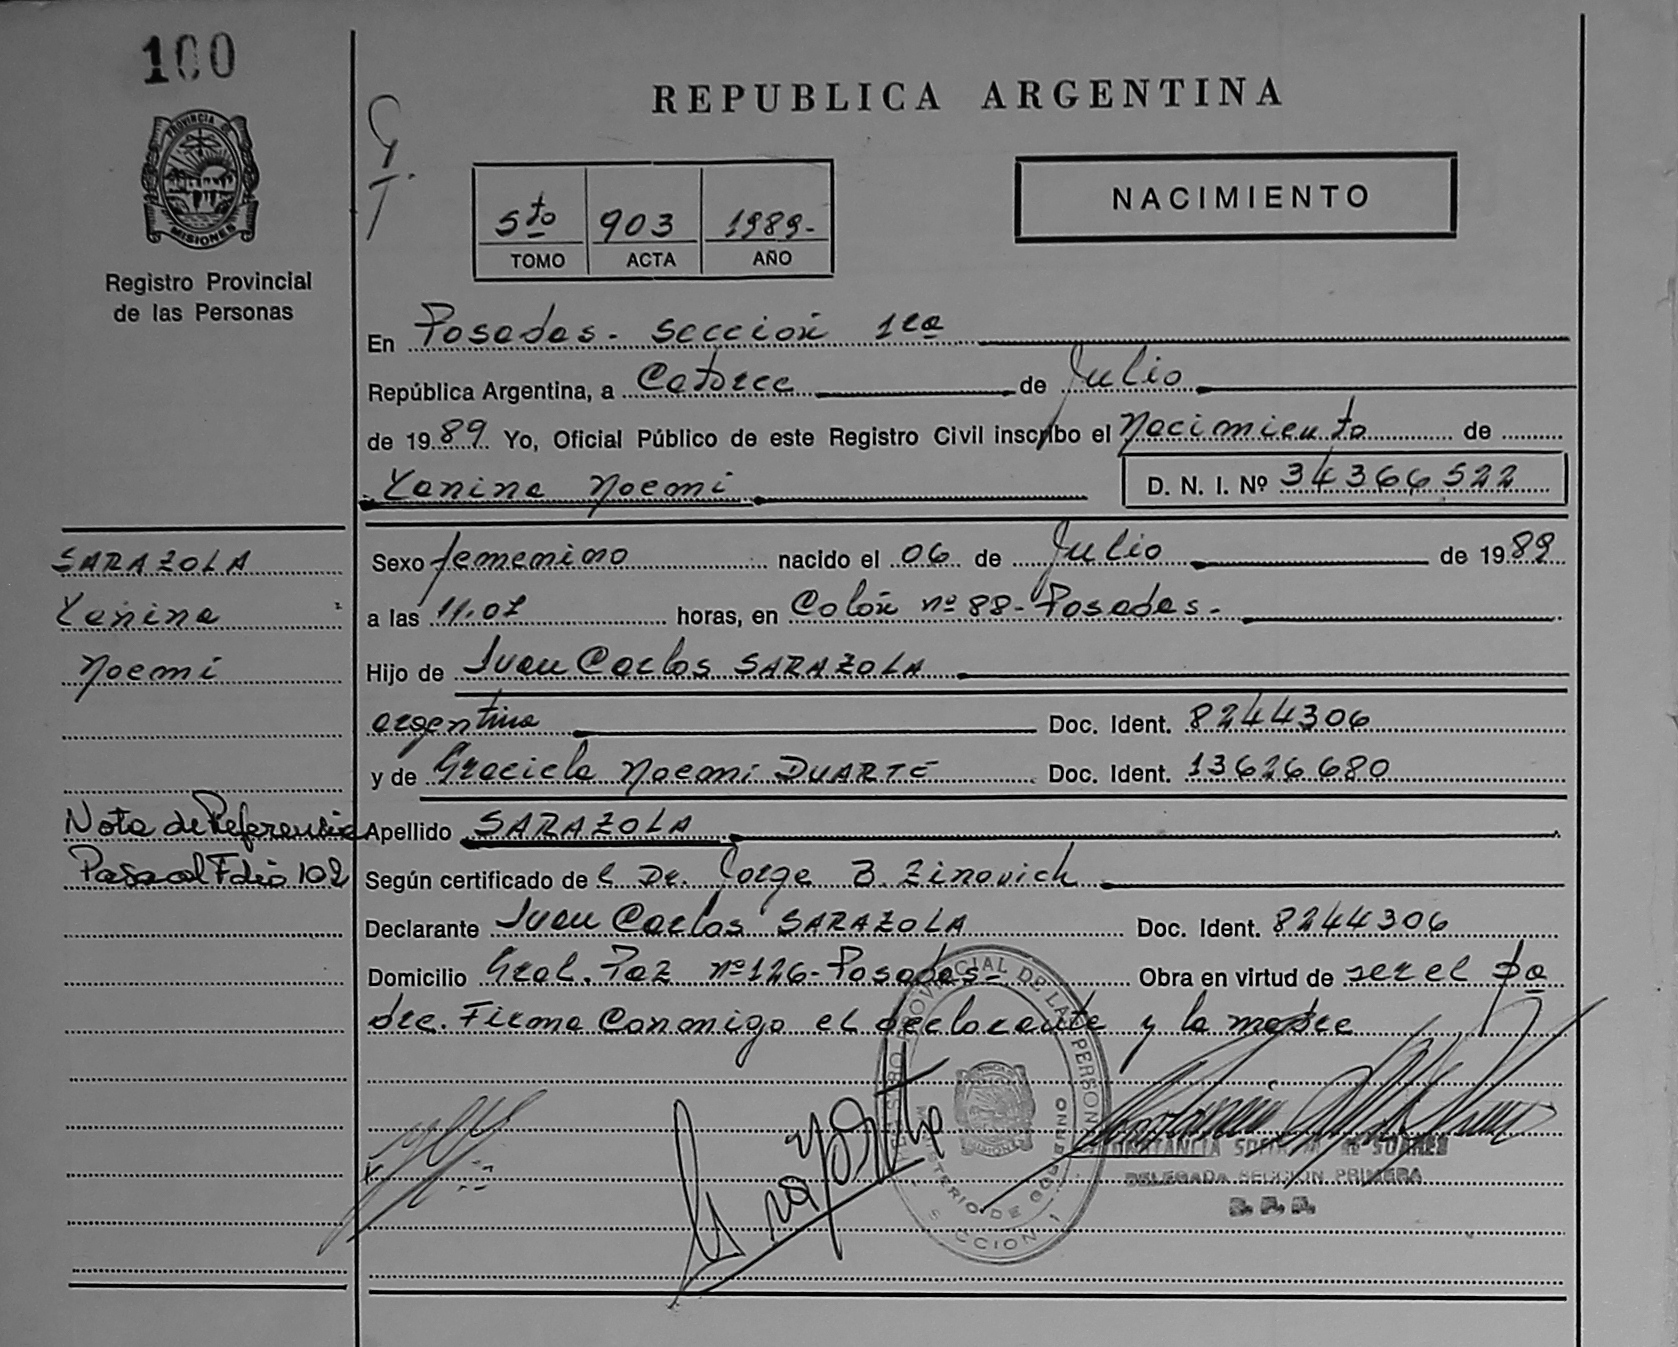 100
REPUBLICA ARGENTINA
PROVINCIA DE
MISIONES
Registro Provincial
de las Personas
5to 903 1989.-
TOMO ACTA AÑO
NACIMIENTO
En Posadas - sección 1ra
República Argentina, a Catorce de Julio
de 1989 Yo, Oficial Público de este Registro Civil inscribo el Nacimiento de
Yanina Noemi D. N. I. Nº 34366522
SARAZOLA
Yanina
Noemi
Nota de Referensia
Pasa al Folio 102
Sexo femenino nacido el 06 de Julio de 1989
a las 11.07 horas, en Colón nº 88 - Posadas -
Hijo de Juan Carlos SARAZOLA
argentina Doc. Ident. 8244306
y de Graciela Noemi DUARTE Doc. Ident. 13626680
Apellido SARAZOLA
Según certificado de el Dr. Jorge B. Zinovich
Declarante Juan Carlos SARAZOLA Doc. Ident. 8244306
Domicilio Gral. Paz nº 126 - Posadas - Obra en virtud de ser el pa
dre. Firma Conmigo el declarante y la madre
REGISTRO PROVINCIAL DE LAS PERSONAS
MINISTERIO DE GOBIERNO
SECCION 1
DELEGADA SECCION PRIMERA